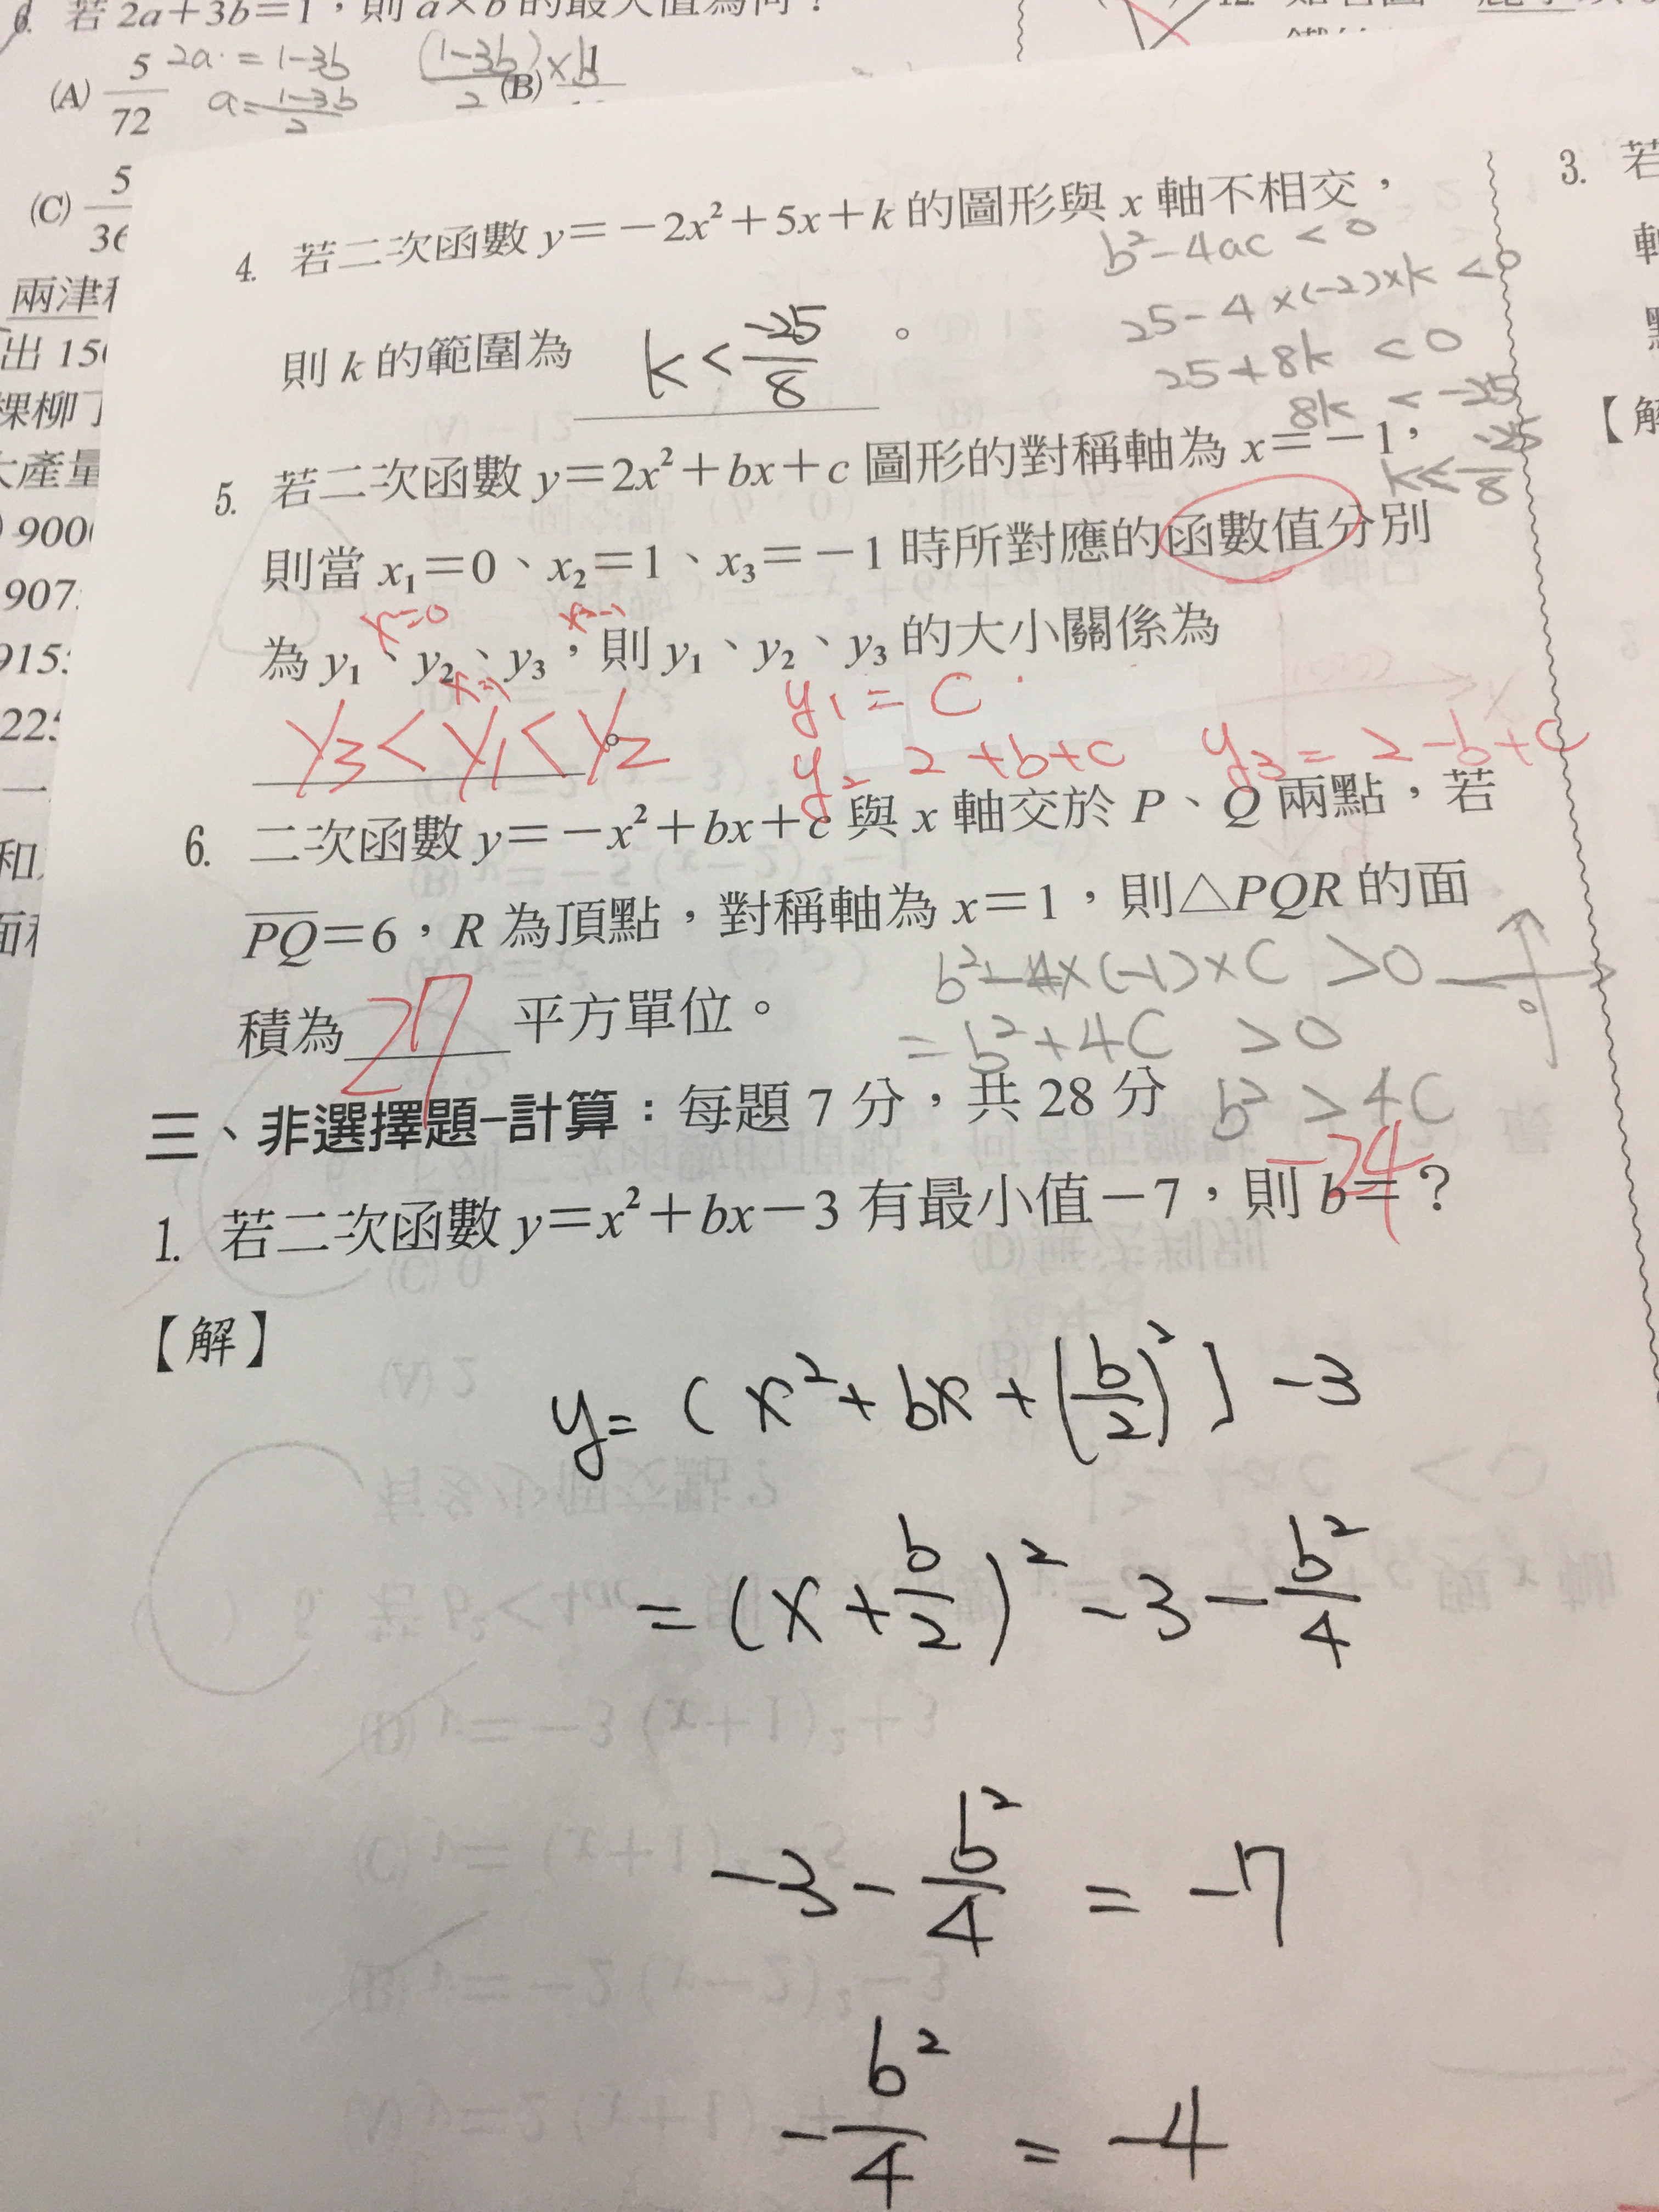 6. 若 2a+3b=1,則 a×b 的最大值為何?
(A) 5/72 2a=1-3b (1-3b)/2×b (B) 1
a=(1-3b)/2
(C) 5/36
兩津
出 150
棵柳丁
大產量
900
907
915
225
和
面積
4. 若二次函數 y=-2x²+5x+k 的圖形與 x 軸不相交,
b²-4ac<0
25-4×(-2)×k<0
則 k 的範圍為 k<-25/8 。
25+8k<0
8k<-25
k<-25/8
5. 若二次函數 y=2x²+bx+c 圖形的對稱軸為 x=-1,
則當 x₁=0、x₂=1、x₃=-1 時所對應的函數值分別
x=0
為 y₁、y₂、y₃,則 y₁、y₂、y₃ 的大小關係為
y₁=c
y₃<y₁<y₂。
y₂ 2+b+c y₃=2-b+c
6. 二次函數 y=-x²+bx+c 與 x 軸交於 P、Q 兩點,若
PQ=6,R 為頂點,對稱軸為 x=1,則△PQR 的面
b²-4×(-1)×c>0
積為 27 平方單位。
=b²+4c>0
b²>4c
三、非選擇題-計算:每題 7 分,共 28 分
-24
1. 若二次函數 y=x²+bx-3 有最小值-7,則 b=?
【解】
y=(x²+bx+(b/2)²]-3
=(x+b/2)²-3-b²/4
-3-b²/4=-7
-b²/4=-4
12.
3. 若
軸
點
【解